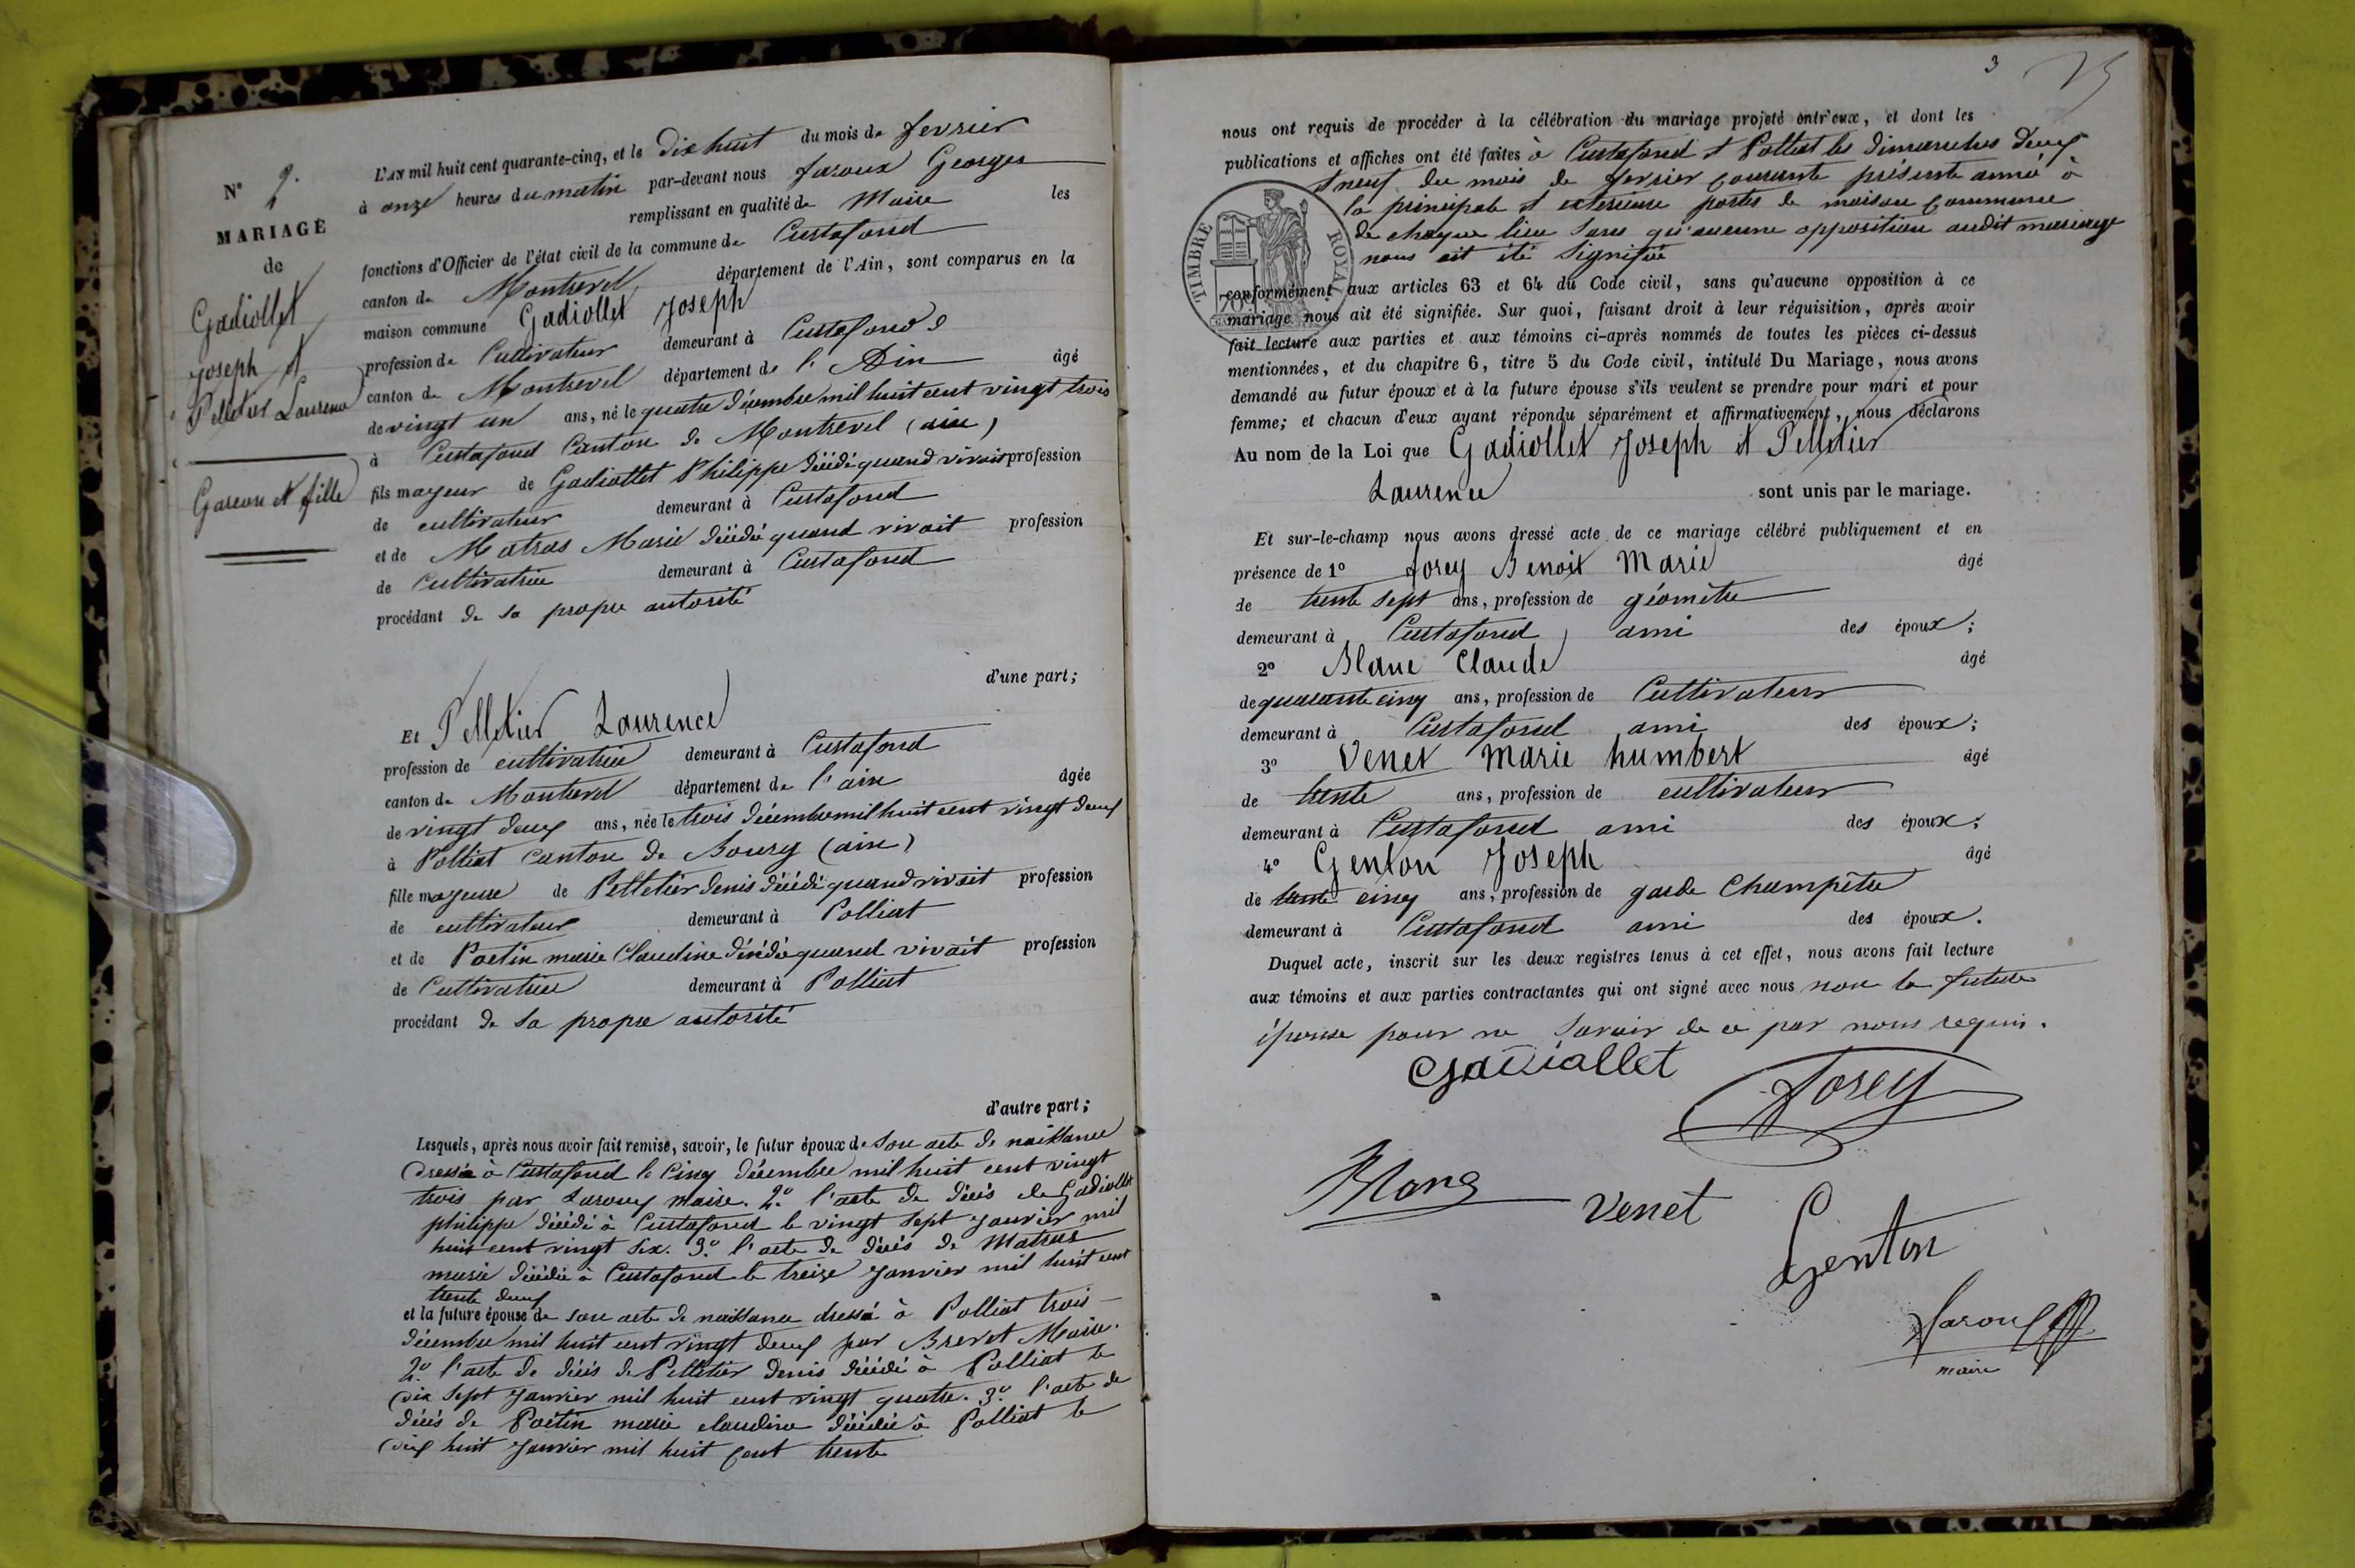 N° 2.
MARIAGE
de
Gadiollet
Joseph et
Pelletier Laurence
Garcon et fille
L'AN mil huit cent quarante-cinq, et le dix huit du mois de fevrier
à onze heures du matin par-devant nous Jaroux Georges
remplissant en qualité de Maire les
fonctions d'Officier de l'état civil de la commune de Curtafond
canton de Montrevel département de l'Ain, sont comparus en la
maison commune Gadiollet Joseph
profession de Cultivateur demeurant à Curtafond
canton de Montrevel département de l'Ain âgé
de vingt un ans, né le quatre décembre mil huit cent vingt trois
à Curtafond Canton de Montrevel (ain)
fils mayeur de Gadiollet Philippe décédé quand vivait profession
de cultivateur demeurant à Curtafond
et de Matras Marie décédé quand vivait profession
de Cultivatrice demeurant à Curtafond
procédant de sa propre autorité
d'une part;
Et Pelletier Laurence
profession de cultivatrice demeurant à Curtafond
canton de Montrevel département de l'ain âgée
de vingt deux ans, née le trois décembre mil huit cent vingt deux
à Polliat canton de Bourg (ain)
fille mayeure de Pelletier denis décédé quand vivait profession
de cultivateur demeurant à Polliat
et de Poetin marie Claudine décédé quand vivait profession
de Cultivatrice demeurant à Polliat
procédant de sa propre autorité
d'autre part;
Lesquels, après nous avoir fait remise, savoir, le futur époux de son acte de naissance
dressé à Curtafond le Cinq décembre mil huit cent vingt
trois par Jaroux maire. 2° l'acte de décès de Gadiollet
philippe décédé à Curtafond le vingt sept janvier mil
huit cent vingt six. 3° l'acte de décès de Matras
marie décédée à Curtafond le treize Janvier mil huit cent
trente deux
et la future épouse de son acte de naissance dressé à Polliat trois
décembre mil huit cent vingt deux par Brevet Maire.
2° l'acte de décès de Pelletier Denis décédé à Polliat le
dix sept janvier mil huit cent vingt quatre. 3° l'acte de
décès de Poëtin marie claudine décédée à Polliat le
dix huit Janvier mil huit cent trente
3
nous ont requis de procéder à la célébration du mariage projeté entr'eux, et dont les
publications et affiches ont été faites à Curtafond et Polliat les dimanches deux
et neuf du mois de fevrier courante présente année à
la principale et exterieure portes de maison Commune
de chaque lieu sans qu'aucune opposition audit mariage
nous ait été signifiée
TIMBRE ROYAL
70 c
conformément aux articles 63 et 64 du Code civil, sans qu'aucune opposition à ce
mariage nous ait été signifiée. Sur quoi, faisant droit à leur réquisition, après avoir
fait lecture aux parties et aux témoins ci-après nommés de toutes les pièces ci-dessus
mentionnées, et du chapitre 6, titre 5 du Code civil, intitulé Du Mariage, nous avons
demandé au futur époux et à la future épouse s'ils veulent se prendre pour mari et pour
femme; et chacun d'eux ayant répondu séparément et affirmativement, nous déclarons
Au nom de la Loi que Gadiollet Joseph et Pelletier
Laurence sont unis par le mariage.
Et sur-le-champ nous avons dressé acte de ce mariage célébré publiquement et en
présence de 1° Jorey Benoit Marie âgé
de trente sept ans, profession de géomètre
demeurant à Curtafond, ami des époux;
2° Blanc Claude âgé
de quarante cinq ans, profession de Cultivateur
demeurant à Curtafond ami des époux;
3° Venet Marie humbert âgé
de trente ans, profession de cultivateur
demeurant à Curtafond ami des époux;
4° Genton Joseph âgé
de trente cinq ans, profession de garde Champêtre
demeurant à Curtafond ami des époux.
Duquel acte, inscrit sur les deux registres tenus à cet effet, nous avons fait lecture
aux témoins et aux parties contractantes qui ont signé avec nous non la future
épouse pour ne savoir de ce par nous requis.
Gadiallet
Jorey
Blanc
Venet
Genton
Jaroux
maire